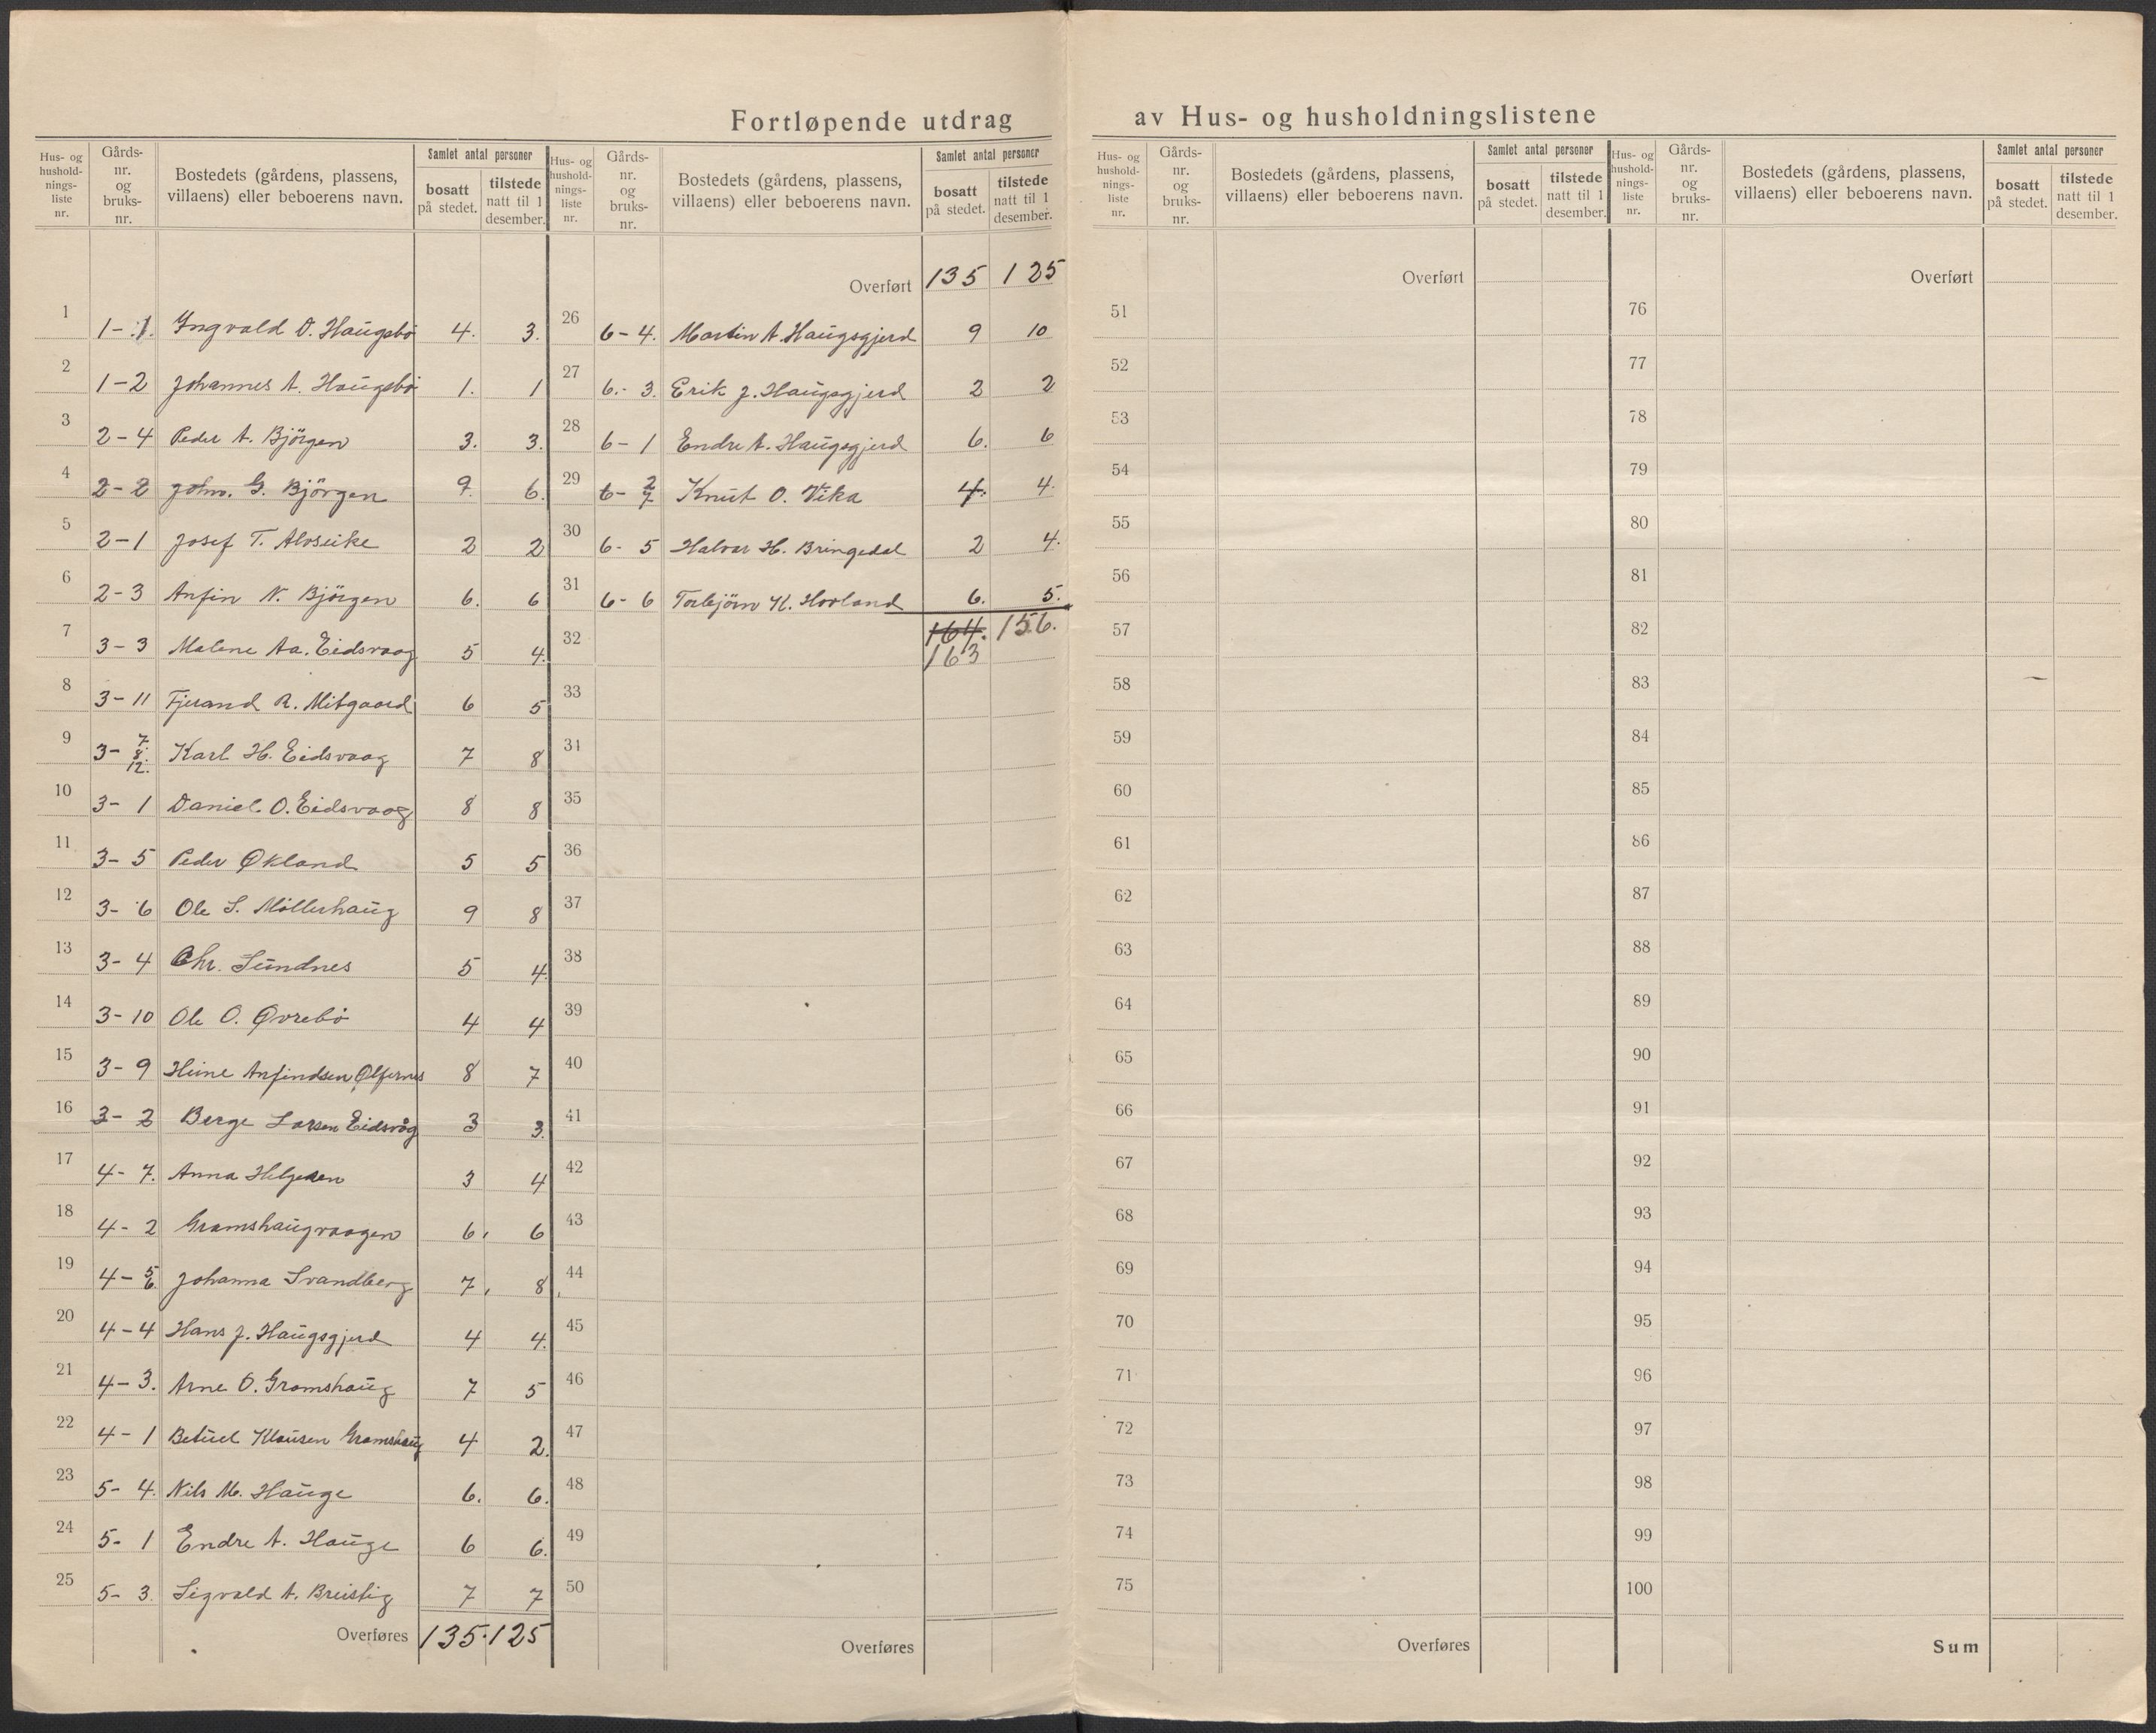 Fortløpende utdrag av Hus- og husholdningslistene
Hus- og hushold-nings-liste nr. Gårds-nr. og bruks-nr. Bostedets (gårdens, plassens, villaens) eller beboerens navn. Samlet antal personer bosatt på stedet. tilstede natt til 1 desember.
1 1-1. Yngvald O. Haugsbö 4. 3.
2 1-2 Johannes A. Haugsbö 1. 1
3 2-4 Peder A. Björgen 3. 3.
4 2-2 John. G. Björgen 9. 6.
5 2-1 Josef T. Alvseike 2 2
6 2-3 Anfin N. Björgen 6. 6
7 3-3 Malene Aa. Eidsvaag 5 4.
8 3-11 Fjerand R. Mitgaard 6 5
9 3-7. 8. 12. Karl H. Eidsvaag 7 8
10 3-1 Daniel O. Eidsvaag 8 8
11 3-5 Peder Økland 5 5
12 3-6 Ole S. Möllerhaug 9 8
13 3-4 Chr. Sundnes 5 4.
14 3-10 Ole O. Øvrebö 4 4
15 3-9 Heine Anfindsen Ølfernes 8 7
16 3-2 Berge Larsen Eidsvåg 3 3.
17 4-7. Anna Helgesen 3 4
18 4-2 Gramshaugvaagen 6, 6
19 4-5 6. Johanna Svandberg 7, 8
20 4-4 Hans J. Haugsgjerd 4 4.
21 4-3. Arne O. Gramshaug 7 5
22 4-1 Betuel Klausen Gramshaug 4 2.
23 5-4. Nils M. Hauge 6. 6.
24 5-1 Endre A. Hauge 6 6.
25 5-3. Sigvald A. Breistig 7 7
Overføres 135. 125
Hus- og hushold-nings-liste nr. Gårds-nr. og bruks-nr. Bostedets (gårdens, plassens, villaens) eller beboerens navn. Samlet antal personer bosatt på stedet. tilstede natt til 1 desember.
Overført 135 125
26 6-4. Martin A. Haugsgjerd 9 10
27 6.-3. Erik J. Haugsgjerd 2 2
28 6-1 Endre A. Haugsgjerd 6. 6
29 6-2 7 Knut O. Vika 4. 4.
30 6-5 Halvar H. Bringedal 2 4.
31 6-6 Torbjörn K. Hovland 6. 5.
32 164. 156.
163
33
34
35
36
37
38
39
40
41
42
43
44
45
46
47
48
49
50
Overføres
Hus- og hushold-nings-liste nr. Gårds-nr. og bruks-nr. Bostedets (gårdens, plassens, villaens) eller beboerens navn. Samlet antal personer bosatt på stedet. tilstede natt til 1 desember.
Overført
51
52
53
54
55
56
57
58
59
60
61
62
63
64
65
66
67
68
69
70
71
72
73
74
75
Overføres
Hus- og hushold-nings-liste nr. Gårds-nr. og bruks-nr. Bostedets (gårdens, plassens, villaens) eller beboerens navn. Samlet antal personer bosatt på stedet. tilstede natt til 1 desember.
Overført
76
77
78
79
80
81
82
83
84
85
86
87
88
89
90
91
92
93
94
95
96
97
98
99
100
Sum